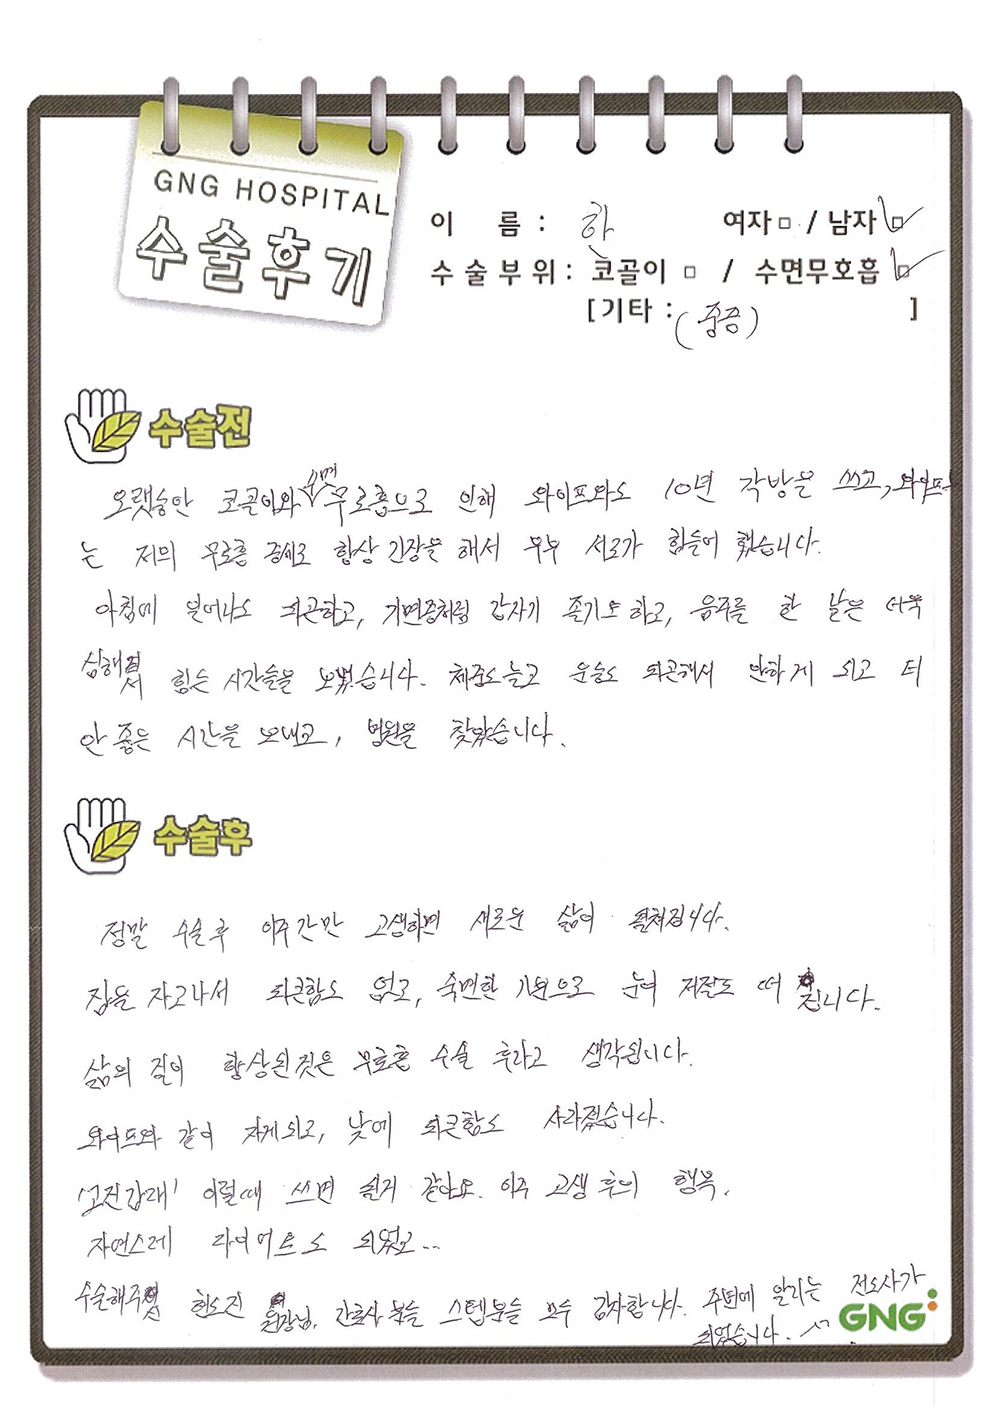 GNG HOSPITAL
수술후기
이 름 : 하 여자□ / 남자☑
수술부위 : 코골이 □ / 수면무호흡 ☑
[기타 : (중증) ]
수술전
오랫동안 코골이와 수면 무호흡으로 인해 와이프와도 10년 각방을 쓰고, 와이프
는 저의 무호흡 증세로 항상 긴장을 해서 부부 서로가 힘들어 했습니다.
아침에 일어나도 피곤하고, 기면증처럼 갑자기 졸기도 하고, 음주를 한 날은 더욱
심해져서 힘든 시간들을 보냈습니다. 체중도 늘고 운동도 피곤해서 안하게 되고 더
안 좋은 시간을 보내고, 병원을 찾았습니다.
수술후
정말 수술 후 이주간만 고생하면 새로운 삶이 펼쳐집니다.
잠을 자고나서 피곤함도 없고, 숙면한 기분으로 눈이 저절로 떠 집니다.
삶의 질이 향상된것은 무호흡 수술 후라고 생각됩니다.
와이프와 같이 자게되고, 낮에 피곤함도 사라졌습니다.
'고진감래' 이럴때 쓰면 될거 같아요. 이주 고생 후의 행복.
자연스레 다이어트도 되었고...
수술해주신 한도진 원장님, 간호사 분들 스텝분들 모두 감사합니다. 주변에 알리는 전도사가
되었습니다. ^^
GNG